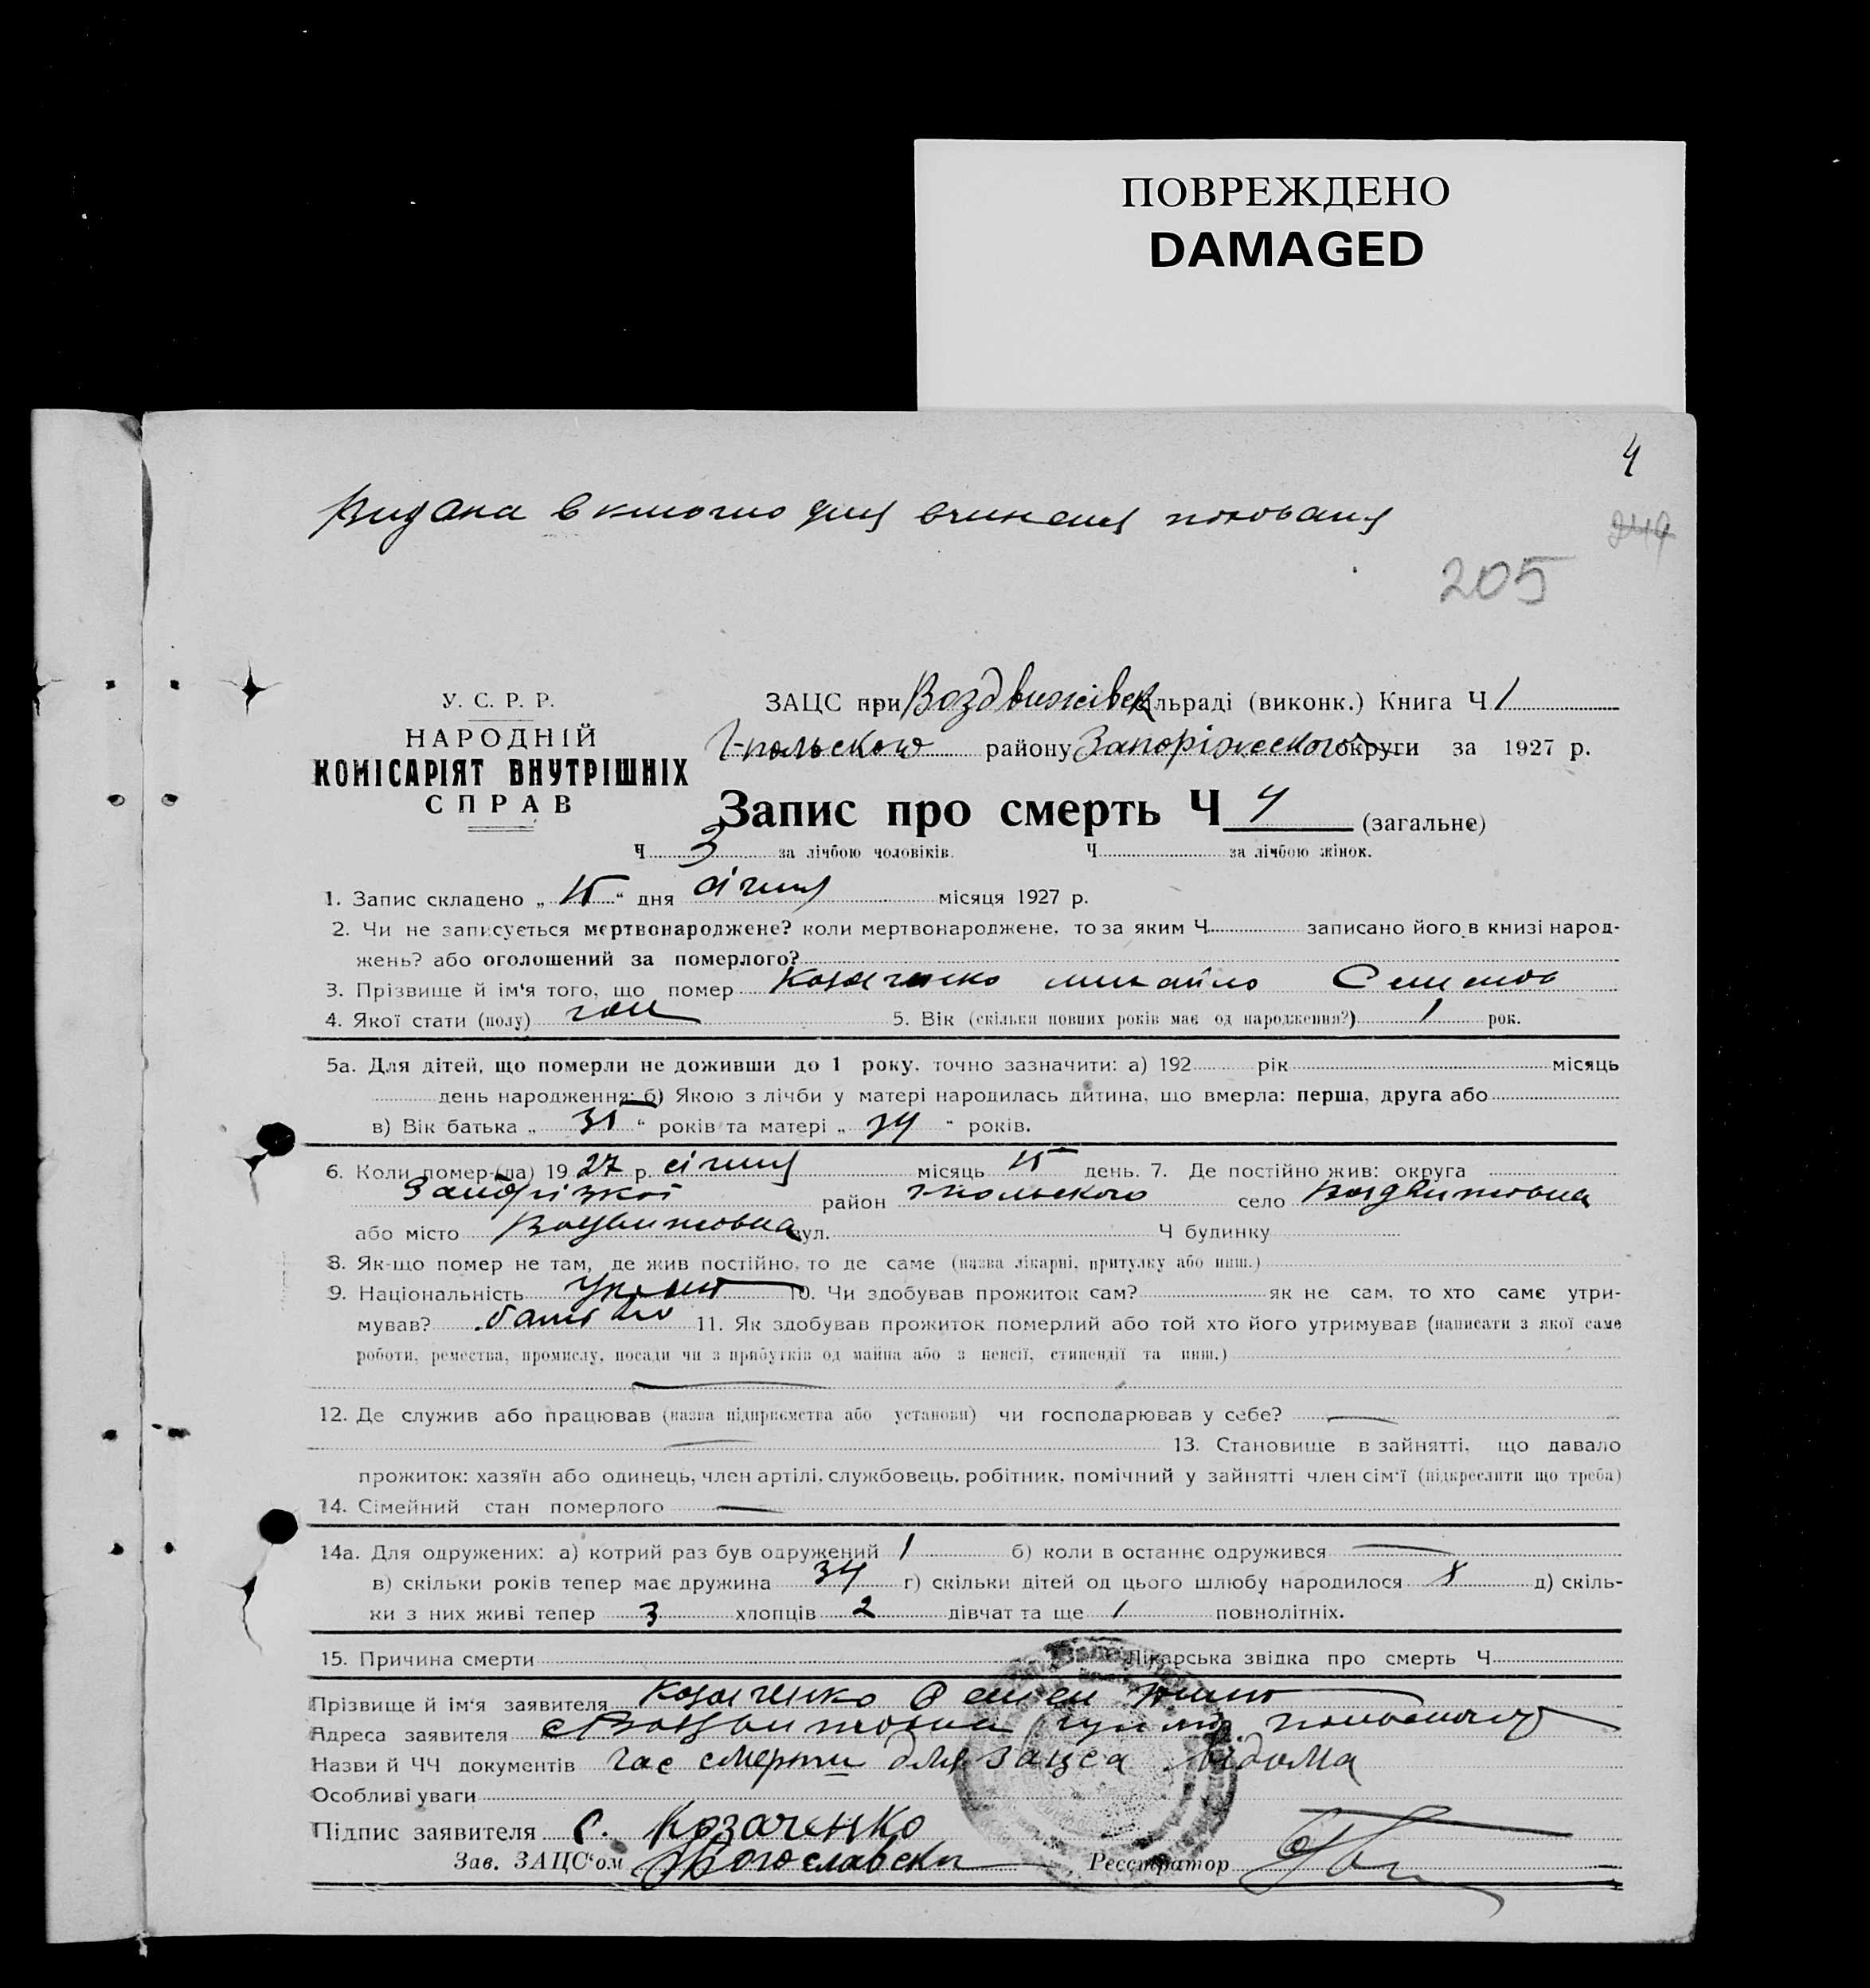 ПОВРЕЖДЕНО
DAMAGED
4
Видана
244
205
У. С. Р. Р.
НАРОДНІЙ
КОМІСАРІЯТ ВНУТРІШНІХ
СПРАВ
ЗАЦС при Воздвижівск сільраді (виконк.) Книга Ч 1
Г-польского району Запоріжского округи за 1927 р.
Запис про смерть Ч 4 (загальне)
Ч 3 за лічбою чоловіків. Ч за лічбою жінок.
1. Запис складено „ 15 “ дня січня місяця 1927 р.
2. Чи не записується мертвонароджене? коли мертвонароджене, то за яким Ч записано його в книзі народ-
жень? або оголошений за померлого?
3. Прізвище й ім‘я того, що помер Козаченко Михайло Семенов
4. Якої стати (полу) чол 5. Вік (скільки повних років має од народження?) 1 рок.
5а. Для дітей, що померли не доживши до 1 року, точно зазначити: а) 192 рік місяць
день народження: б) Якою з лічби у матері народилась дитина, що вмерла: перша, друга або
в) Вік батька „ 35 “ років та матері „ 34 “ років.
6. Коли помер-(ла) 19 27 р. січня місяць 15 день. 7. Де постійно жив: округа
Запорізкої район Г-польского село Воздвижовка
або місто Воздвижовка вул. Ч будинку
8. Як-що помер не там, де жив постійно, то де саме (назва лікарні, притулку або инш.)
9. Національність 10. Чи здобував прожиток сам? як не сам, то хто саме утри-
мував? батько 11. Як здобував прожиток померлий або той хто його утримував (написати з якої саме
роботи, ремества, промислу, посади чи з прибутків од майна або з пенсії, стипендії та инш.)
12. Де служив або працював (назва підприємства або установи) чи господарював у себе?
13. Становище в зайнятті, що давало
прожиток: хазяїн або одинець, член артілі, службовець, робітник, помічний у зайнятті член сім‘ї (підкреслити що треба)
14. Сімейний стан померлого
14а. Для одружених: а) котрий раз був одружений 1 б) коли в останнє одружився
в) скільки років тепер має дружина 34 г) скільки дітей од цього шлюбу народилося 8 д) скіль-
ки з них живі тепер 3 хлопців 2 дівчат та ще 1 повнолітніх.
15. Причина смерти Лікарська звідка про смерть Ч
Прізвище й ім‘я заявителя Козаченко Семен
Адреса заявителя с Воздвижовка
Назви й ЧЧ документів час смерти для зацса відома
Особливі уваги
Підпис заявителя С. Козаченко
Зав. ЗАЦС‘ом Реєстратор